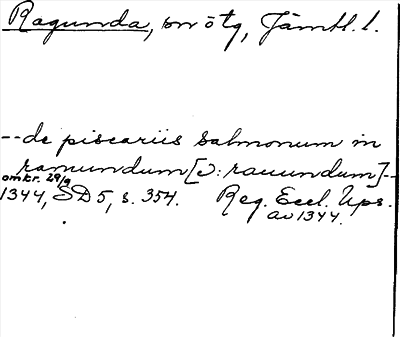 Ragunda, sn o tg, Jämtl. l.
-- de piscariis salmonum in
ramundum [ɔ: rauundum] --
omkr. 29/9
1344, SD 5, s. 354. Reg. Eccl. Ups.
av 1344.